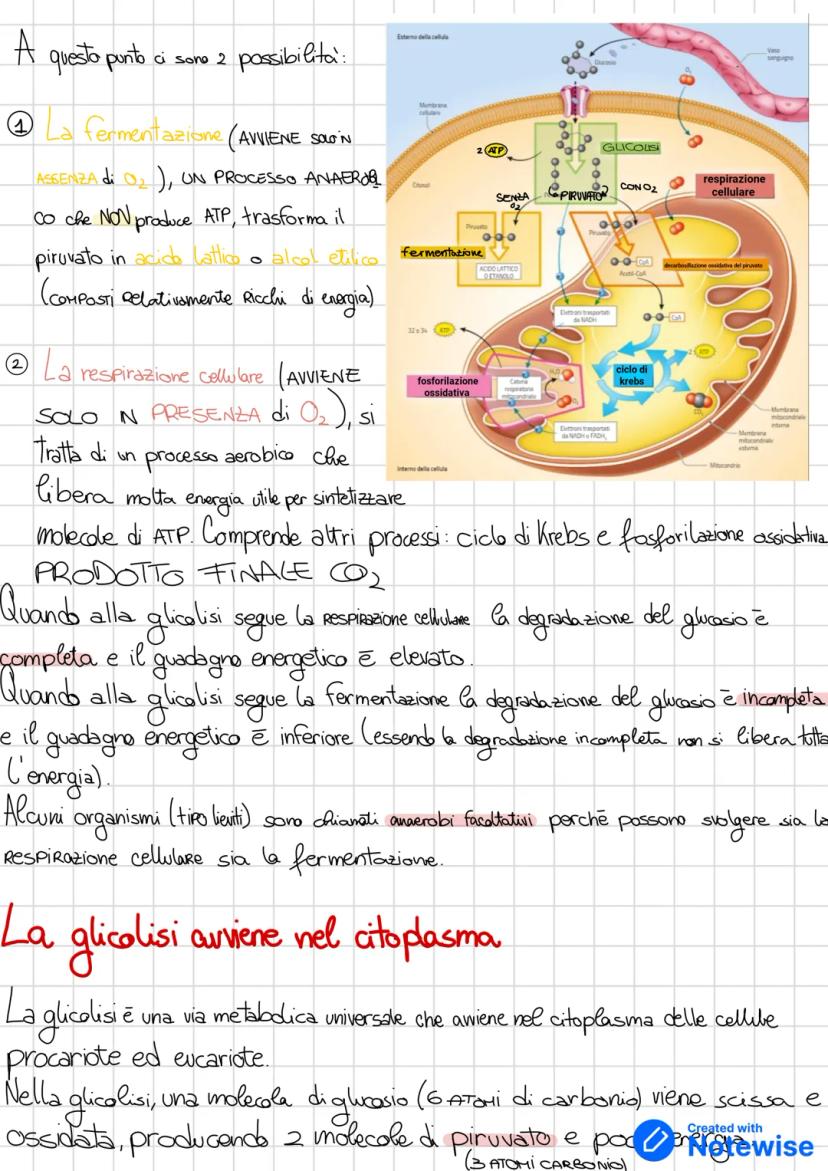 A questo punto ci sono 2 possibilità:
① La fermentazione (AVVIENE SOLO IN
ASSENZA di O₂), UN PROCESSO ANAEROBI
CO che NON produce ATP, trasforma il
piruvato in acido lattico o alcol etilico
(COMPOSTI Relativamente Ricchi di energia)
② La respirazione cellulare (AVVIENE
SOLO IN PRESENZA di O₂), si
tratta di un processo aerobico che
libera molta energia utile per sintetizzare
molecole di ATP. Comprende altri processi: ciclo di Krebs e fosforilazione ossidativa
PRODOTTO FINALE CO₂
Esterno della cellula
Vaso
sanguigno
Glucosio
O₂
Membrana
cellulare
2 ATP
GLICOLISI
Citosol
respirazione
cellulare
SENZA
O₂
PIRUVATO
CON O₂
Piruvato
Piruvato
fermentazione
ACIDO LATTICO
O ETANOLO
CoA
Acetil-CoA
decarbossilazione ossidativa del piruvato
Elettroni trasportati
da NADH
CoA
32 o 34 ATP
2 ATP
H₂O
fosforilazione
ossidativa
Catena
respiratoria
mitocondriale
O₂
ciclo di
krebs
CO₂
Elettroni trasportati
da NADH e FADH₂
Membrana
mitocondriale
interna
Membrana
mitocondriale
esterna
Mitocondrio
Interno della cellula
Quando alla glicolisi segue la RESPIRAZIONE cellulare la degradazione del glucosio è
completa e il guadagno energetico è elevato.
Quando alla glicolisi segue la fermentazione la degradazione del glucosio è incompleta
e il guadagno energetico è inferiore (essendo la degradazione incompleta non si libera tutta
l'energia).
Alcuni organismi (tipo lieviti) sono chiamati anaerobi facoltativi perchè possono svolgere sia la
RESPIRAZIONE cellulare sia la fermentazione.
La glicolisi avviene nel citoplasma
La glicolisi è una via metabolica universale che avviene nel citoplasma delle cellule
procariote ed eucariote.
Nella glicolisi, una molecola di glucosio (6 ATOMI di carbonio) viene scissa e
ossidata, producendo 2 molecole di piruvato e poca energia.
(3 ATOMI CARBONIO)
Created with
Notewise